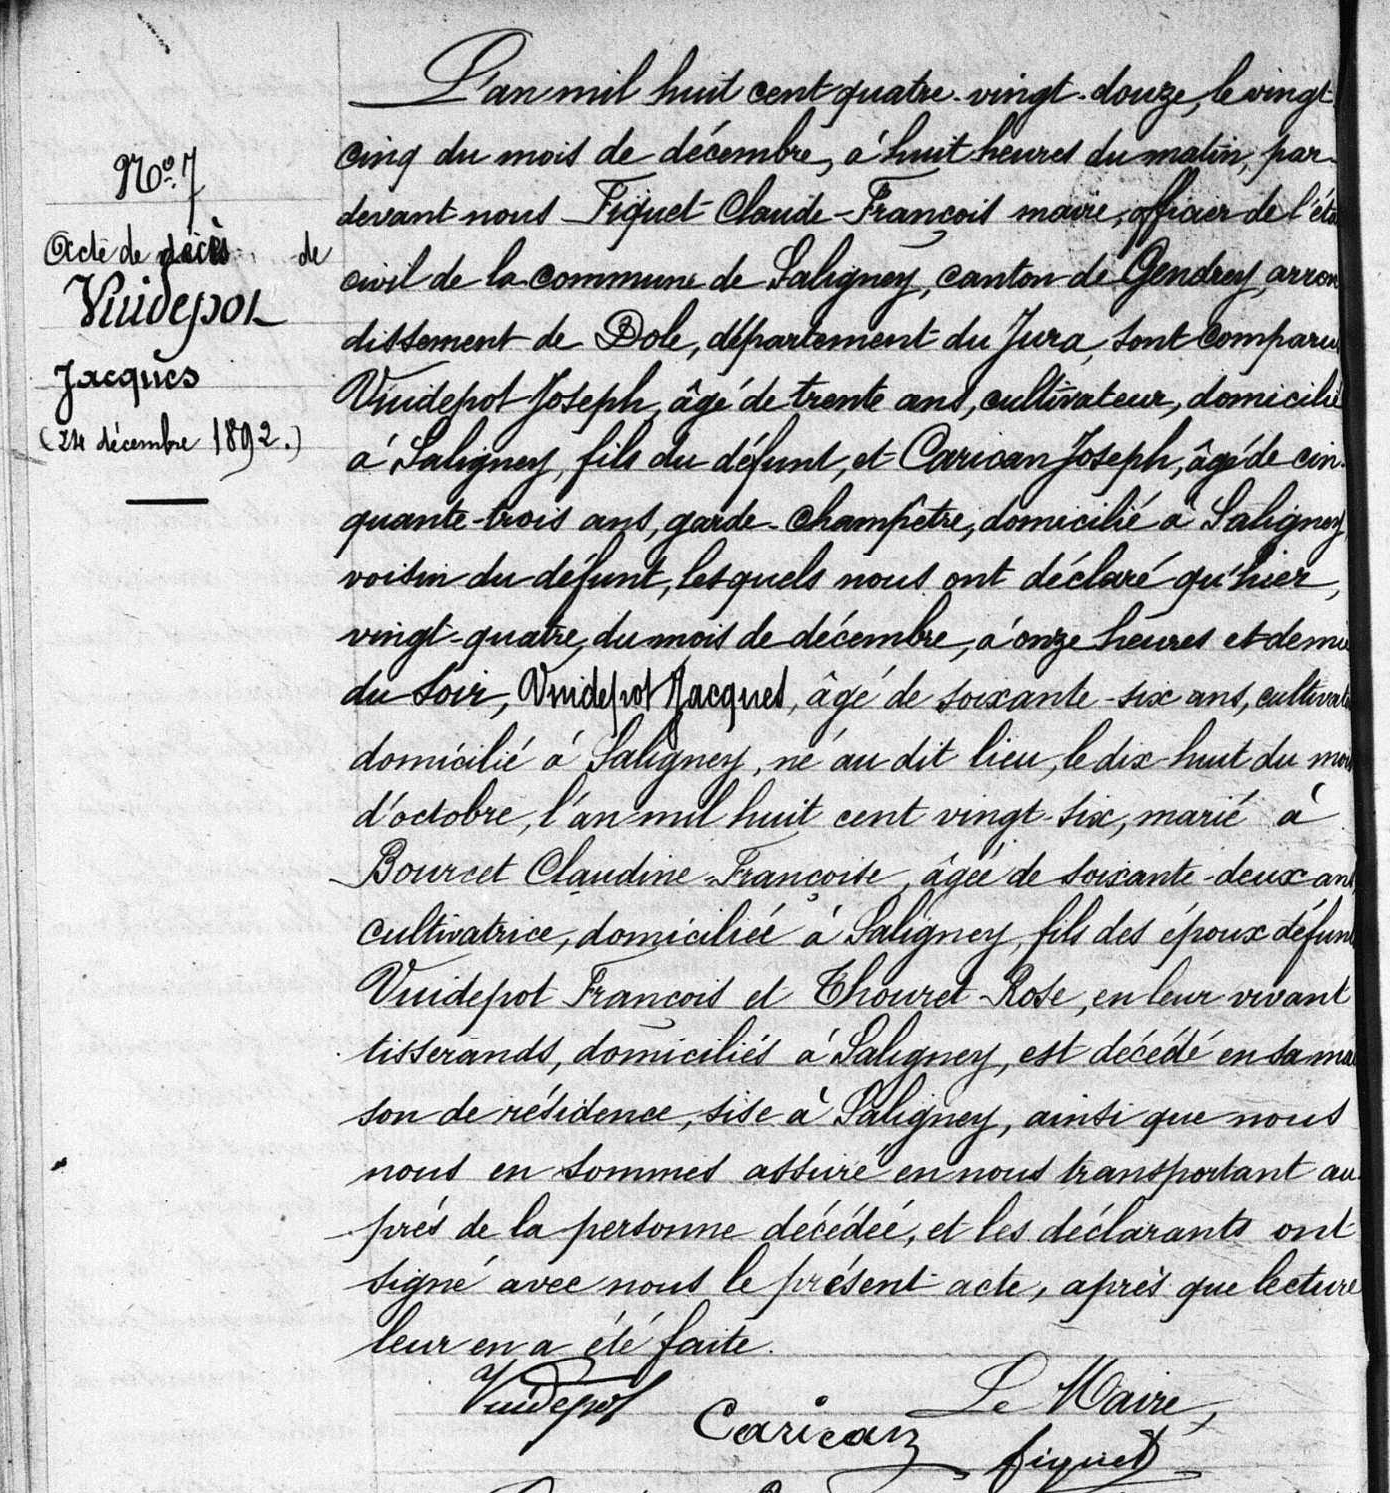 L'an mil huit cent quatre-vingt-douze, le vingt
cinq du mois de décembre, à huit heures du matin, par-
devant nous Figuet Claude-François maire, officier de l'éta
civil de la commune de Saligney, canton de Gendrey, arron
dissement de Dole, département du Jura, sont comparu
Vuidepot Joseph, âgé de trente ans, cultivateur, domicilié
à Saligney, fils du défunt, et Carican Joseph, âgé de cin-
quante-trois ans, garde-champêtre, domicilié à Saligney,
voisin du défunt, lesquels nous ont déclaré qu'hier,
vingt-quatre, du mois de décembre, à onze heures et demie
du soir, Vuidepot Jacques, âgé de soixante-six ans, cultivate
domicilié à Saligney, né au dit lieu, le dix-huit du moi
d'octobre, l'an mil huit cent vingt-six, marié à
Bourcet Claudine-Françoise, âgée de soixante-deux ans,
cultivatrice, domiciliée à Saligney, fils des époux défun
Vuidepot François et Thouret Rose, en leur vivant
tisserands, domiciliés à Saligney, est décédé en sa mai
son de résidence, sise à Saligney, ainsi que nous
nous en sommes assuré en nous transportant au-
près de la personne décédée, et les déclarants ont
signé avec nous le présent acte, après que lecture
leur en a été faite.
Vuidepot Carican Le Maire,
figuet
No. 7
Acte de décès de
Vuidepot
Jacques
(24 décembre 1892.)